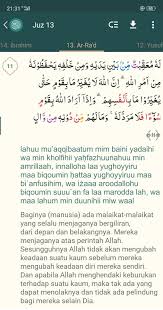 21:31
Juz 13
14. Ibrahim 13. Ar-Ra'd 12. Yusuf
11
لَهُ مُعَقِّبٰتٌ مِّنْۢ بَيْنِ يَدَيْهِ وَمِنْ خَلْفِهٖ يَحْفَظُوْنَهٗ
مِنْ اَمْرِ اللّٰهِ ۗ اِنَّ اللّٰهَ لَا يُغَيِّرُ مَا بِقَوْمٍ حَتّٰى
يُغَيِّرُوْا مَا بِاَنْفُسِهِمْ ۗ وَاِذَآ اَرَادَ اللّٰهُ بِقَوْمٍ
سُوْۤءًا فَلَا مَرَدَّ لَهٗ ۚ وَمَا لَهُمْ مِّنْ دُوْنِهٖ مِنْ وَّالٍ
lahuu mu'aqqibaatum mim baini yadaihi
wa min kholfihii yahfazhuunahuu min
amrillaah, innallaha laa yughoyyiru
maa biqoumin hattaa yughoyyiruu maa
bi`anfusihim, wa izaaa aroodallohu
biqoumin suuu`an fa laa marodda lah, wa
maa lahum min duunihii miw waal
Baginya (manusia) ada malaikat-malaikat
yang selalu menjaganya bergiliran,
dari depan dan belakangnya. Mereka
menjaganya atas perintah Allah.
Sesungguhnya Allah tidak akan mengubah
keadaan suatu kaum sebelum mereka
mengubah keadaan diri mereka sendiri.
Dan apabila Allah menghendaki keburukan
terhadap suatu kaum, maka tak ada yang
dapat menolaknya dan tidak ada pelindung
bagi mereka selain Dia.